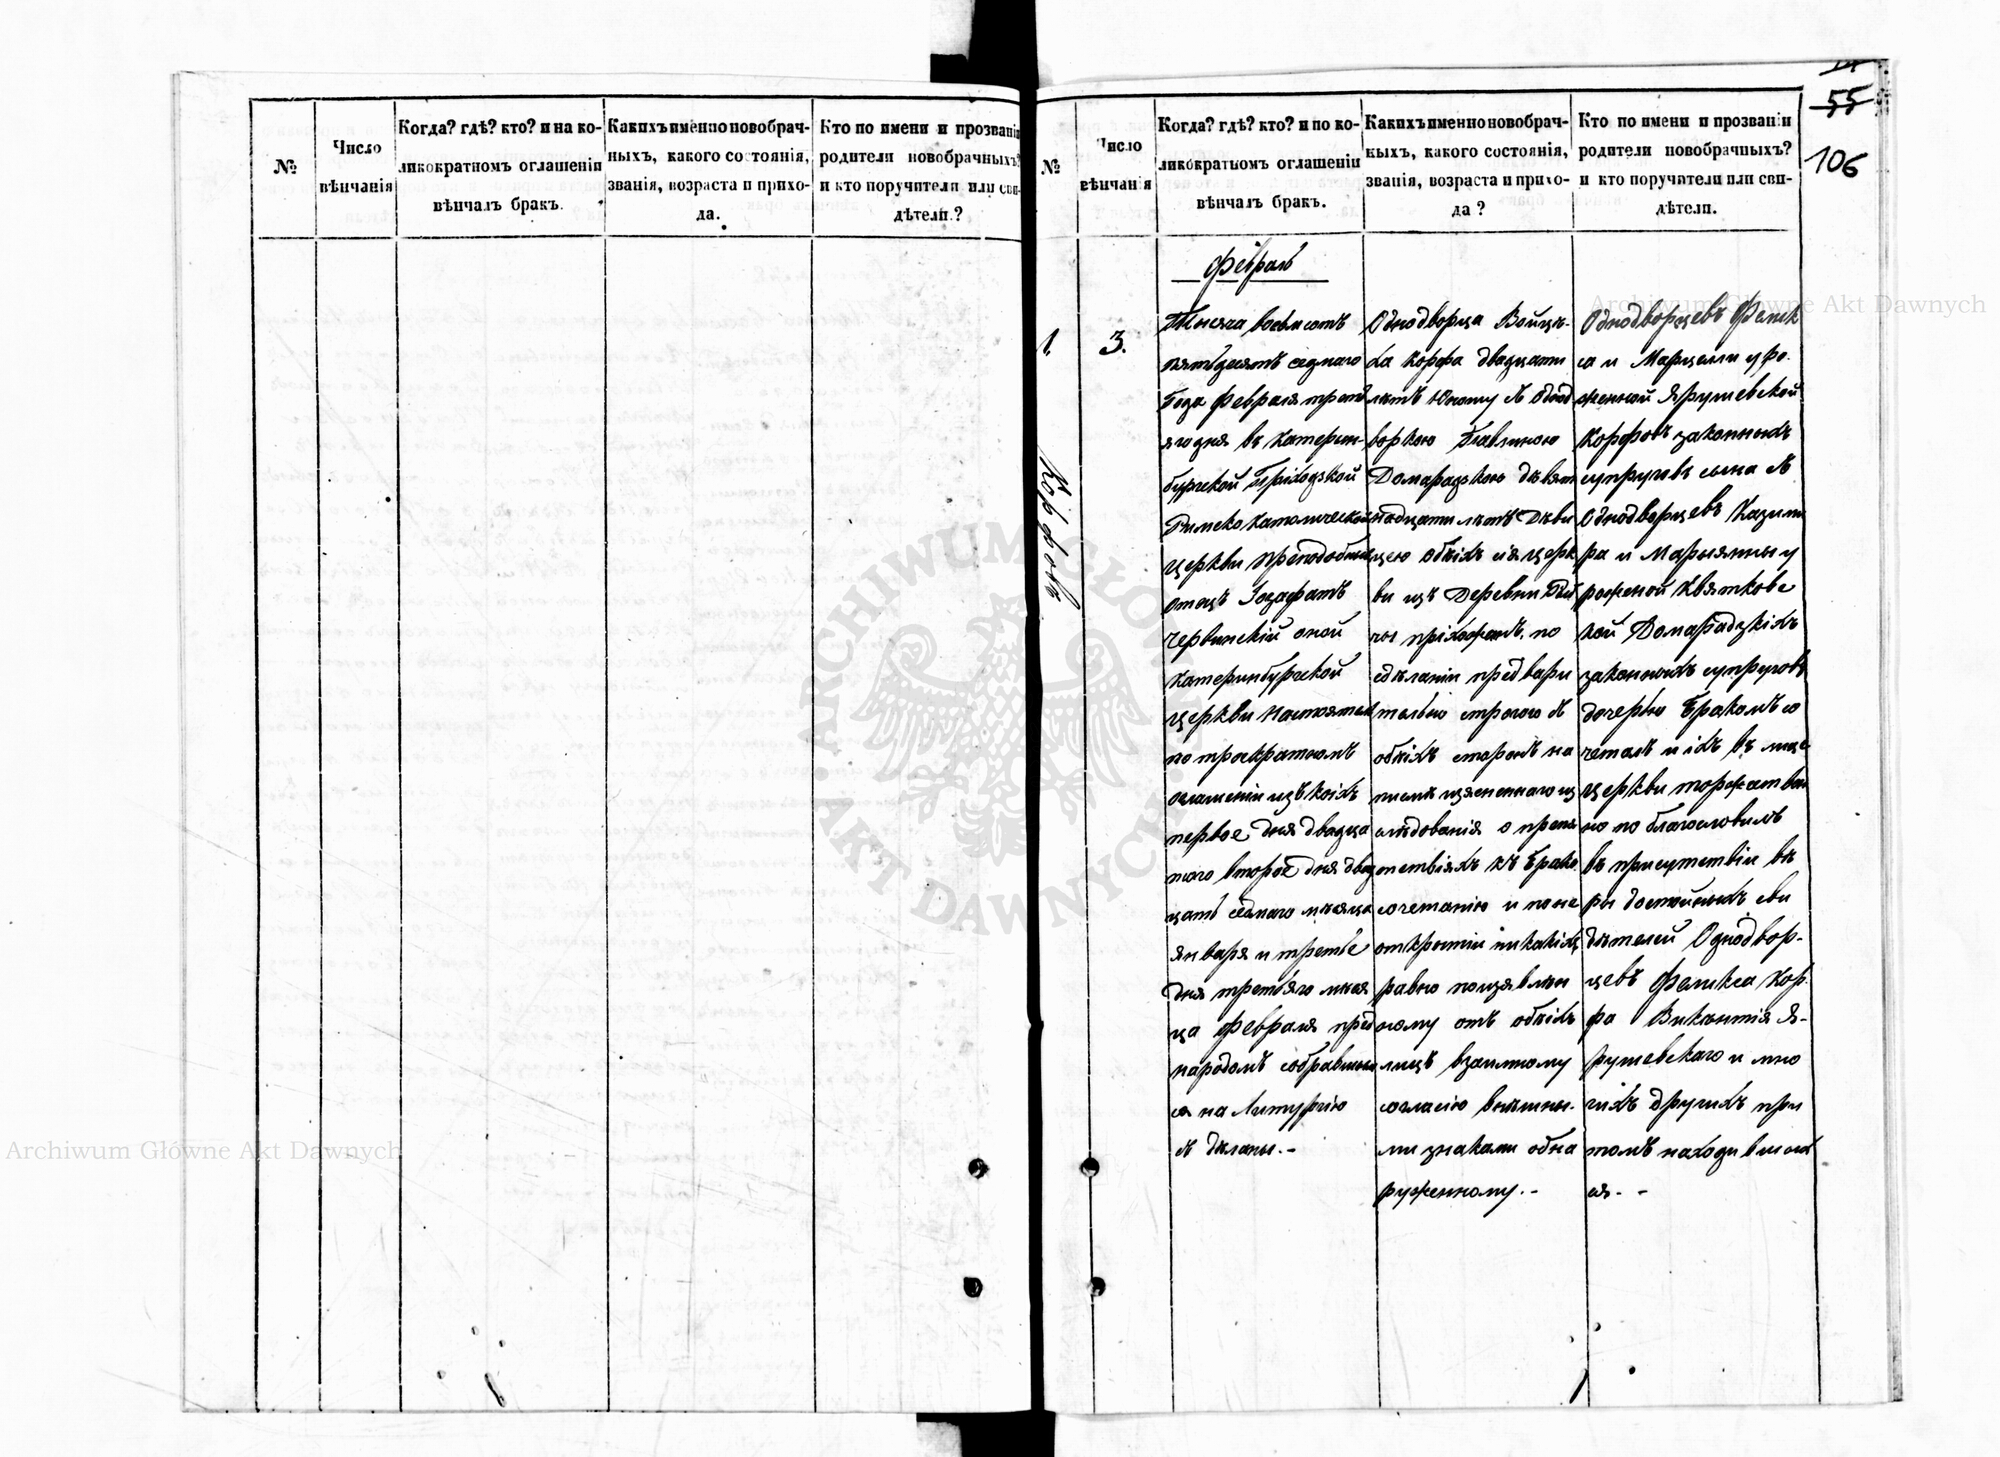 №
Число
вѣнчанія
Когда? гдѣ? кто? и на ко-
ликократномъ оглашеніи
вѣнчалъ бракъ.
Какихъ именно новобрач-
ныхъ, какого состоянія,
званія, возраста и прихо-
да.
Кто по имени и прозванію
родители новобрачныхъ?
и кто поручители или сви-
дѣтели?
№
Число
вѣнчанія
Когда? гдѣ? кто? и по ко-
ликократномъ оглашеніи
вѣнчалъ бракъ.
Какихъ именно новобрач-
ныхъ, какого состоянія,
званія, возраста и прихо-
да?
Кто по имени и прозванію
родители новобрачныхъ?
и кто поручители или сви-
дѣтели.
55
106
1.
3.
Корфовъ
Февраль
Тысяча восемсотъ
пятьдесятъ седмаго
Года Февраля треть
яго дня въ Катерин-
бургской Приходской
Римско Католической
церкви Преподобный
отецъ Іозафатъ
Червинскій оной
Катеринбургской
церкви Настоятель
по троекратномъ
оглашеніи изъ коихъ
первое дня двадца
того второе дня двад
цать седмаго месяца
января и третье
дня третьяго меся
ца Февраля пред
народомъ собравшим
ся на Литургію
с деланы.-
Однодворца Войце-
ха Корфа двадцати
летъ Юношу съ Однод
воркою Павлиною
Домарадзкою девят
надцати летъ Деви
цею обоихъ сія церк
ви изъ Деревни
прихожанъ. по
сделаніи предвари
тельно строгого съ
обоихъ сторонъ на
писмѣ изясненнаго из
следованія о препя
тствіяхъ къ брако
сочетанію и по не
открытіи никакихъ
равно по изявлен
ному отъ обоихъ
лицъ взаимному
согласію внешны-
ми знаками обна
руженному.-
Однодворцевъ Фелик
са и Марцелли уро
жденной Ярушевской
Корфовъ законныхъ
супруговъ сына съ
Однодворцевъ Казими
ра и Марыянны у
рожденной Квятковс
кой Домарадзкихъ
законныхъ супруговъ
дочерью Бракомъ со
четалъ и ихъ въ лице
церкви торжествен
но по благословилъ
въ присутствіи ве
ры достойныхъ сви
детелей Однодвор-
цевъ Феликса Кор
фа Викентія Я-
рушевскаго и мно
гихъ другихъ при
томъ находившихъ
ся.-
Archiwum Główne Akt Dawnych
Archiwum Główne Akt Dawnych
ARCHIWUM GŁÓWNE
AKT DAWNYCH